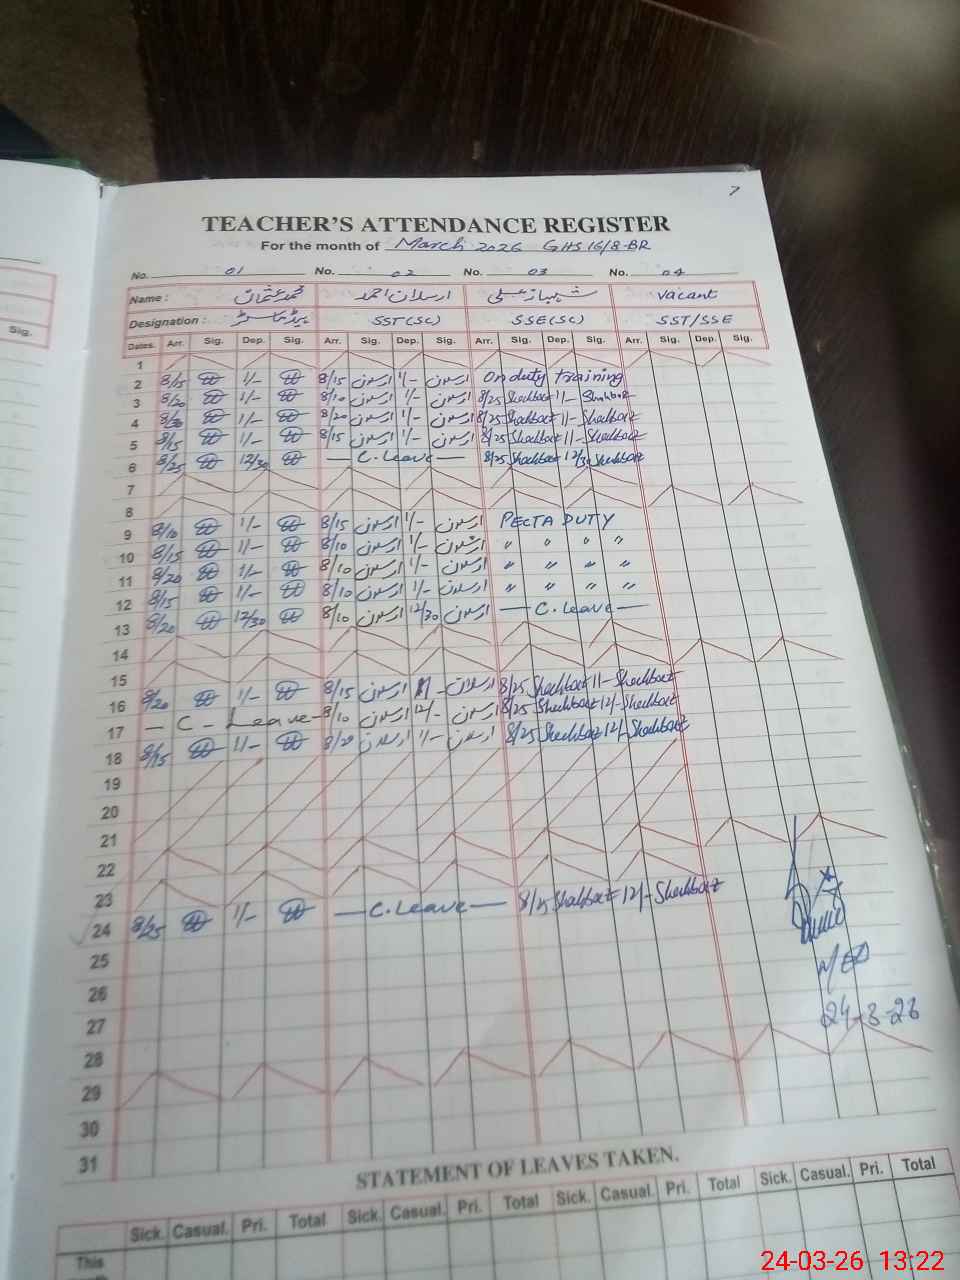 7
TEACHER'S ATTENDANCE REGISTER
For the month of March 2026 GHS 16/8-BR
No. 01 No. 02 No. 03 No. 04
Name : محمد عثمان ارسلان احمد شہباز علی Vacant
Designation : ہیڈ ماسٹر SST(SC) SSE(SC) SST/SSE
Dates. Arr. Sig. Dep. Sig. Arr. Sig. Dep. Sig. Arr. Sig. Dep. Sig. Arr. Sig. Dep. Sig.
1
2 8/15 1/- 8/15 ارسلان 1/- ارسلان On duty training
3 8/20 1/- 8/10 ارسلان 1/- ارسلان 8/25 Shahbaz 1/- Shahbaz
4 1/- 8/20 ارسلان 1/- ارسلان 8/25 Shahbaz 1/- Shahbaz
5 8/15 1/- 8/15 ارسلان 1/- ارسلان 8/25 Shahbaz 1/- Shahbaz
6 8/25 12/30 — C. Leave — 8/25 Shahbaz 12/30 Shahbaz
7
8
9 8/10 1/- 8/15 ارسلان 1/- ارسلان PECTA DUTY
10 8/15 1/- 8/10 ارسلان 1/- ارسلان " " " "
11 8/20 1/- 8/10 ارسلان 1/- ارسلان " " " "
12 8/15 1/- 8/10 ارسلان 1/- ارسلان " " " "
13 8/20 12/30 8/10 ارسلان 12/30 ارسلان — C. Leave —
14
15
16 8/20 1/- 8/15 ارسلان ارسلان 8/25 Shahbaz 1/- Shahbaz
17 — C - Leave - 8/10 ارسلان 12/- ارسلان 8/25 Shahbaz 12/- Shahbaz
18 8/15 1/- 8/20 ارسلان 1/- ارسلان 8/25 Shahbaz 12/- Shahbaz
19
20
21
22
23
24 8/25 1/- — C. Leave — 8/25 Shahbaz 12/- Shahbaz
25
26
27
28
29
30
31
24-3-26
STATEMENT OF LEAVES TAKEN.
Sick. Casual. Pri. Total Sick. Casual. Pri. Total Sick. Casual. Pri. Total Sick. Casual. Pri. Total
This
Sig.
24-03-26 13:22